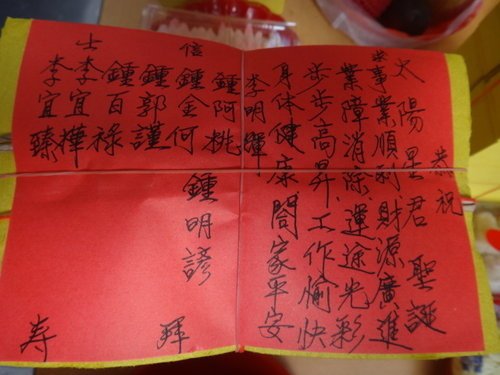 恭祝
太陽星君 聖誕
求事業順利財源廣進
業障消除運途光彩
步步高昇工作愉快
身体健康閤家平安
李明輝
鍾阿桃
信 鍾金何 鍾明諺 拜
鍾郭謹
鍾百祿
士 李宜樺
李宜臻 寿